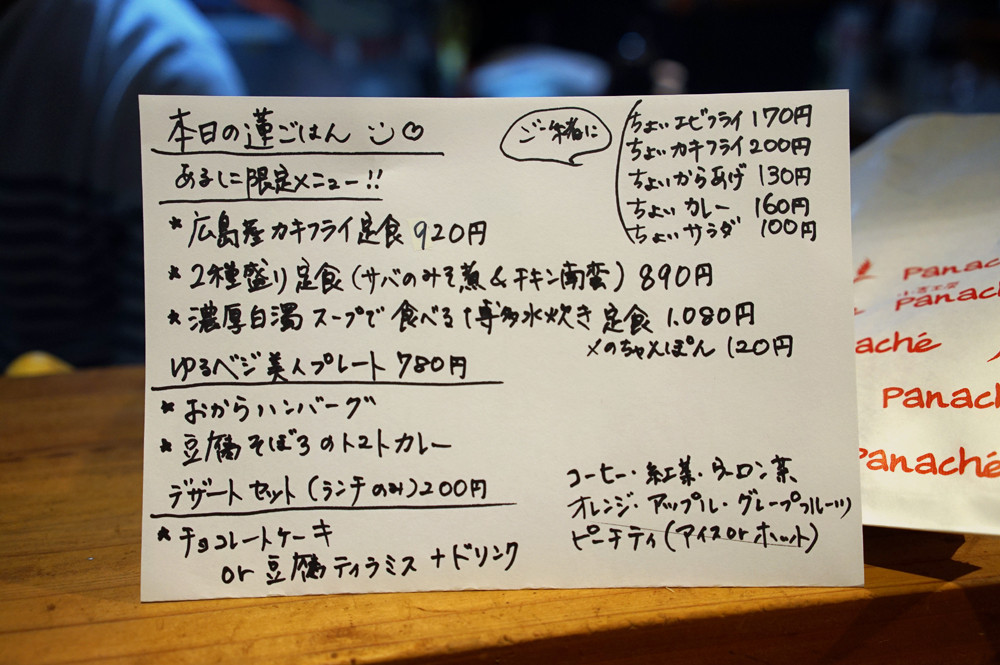 本日の蓮ごはん
あるしに限定メニュー!!
* 広島産カキフライ定食 920円
* 2種盛り定食(サバのみそ煮&チキン南蛮) 890円
* 濃厚白濁スープで食べる博多水炊き定食 1.080円
〆のちゃんぽん 120円
ゆるベジ美人プレート 780円
* おからハンバーグ
* 豆腐そぼろのトマトカレー
デザートセット(ランチのみ)200円
* チョコレートケーキ
or 豆腐ティラミス+ドリンク
ご一緒に
ちょいエビフライ 170円
ちょいカキフライ 200円
ちょいからあげ 130円
ちょいカレー 160円
ちょいサラダ 100円
コーヒー・紅茶・ウーロン茶
オレンジ・アップル・グレープフルーツ
ピーチティ(アイスorホット)
Panac
Panach
aché
Panac
Panaché